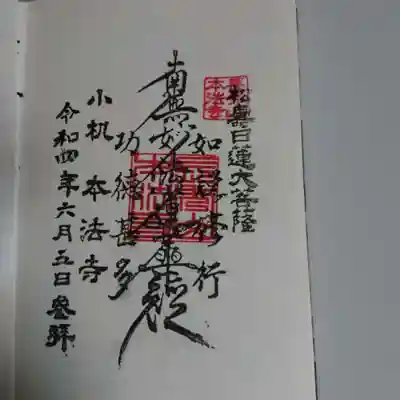 日蓮大菩薩
如説修行
南無妙法蓮華経
功徳甚多
小机 本法寺
令和四年六月五日 參拜